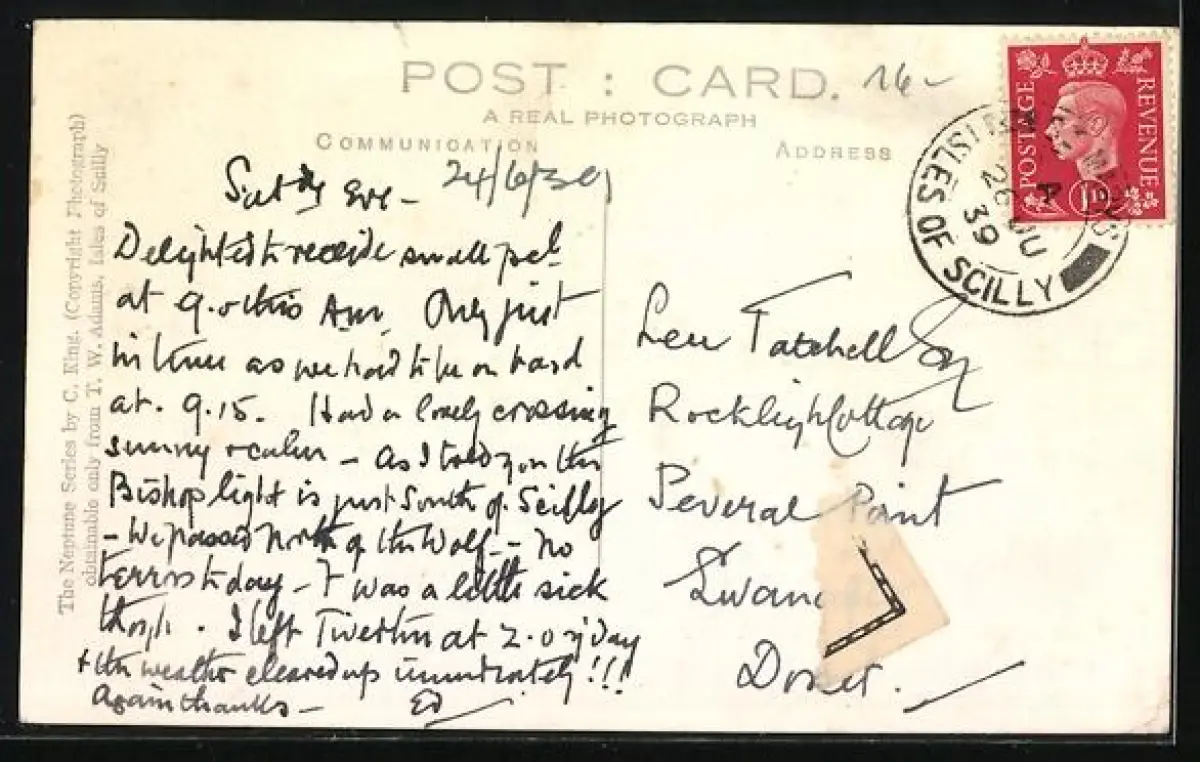 POST : CARD.
16-
A REAL PHOTOGRAPH
COMMUNICATION
ADDRESS
POSTAGE
REVENUE
ISLES OF SCILLY
26 JU
39
The Neptune Series by C. King. (Copyright Photograph)
obtainable only from T. W. Adams, Isles of Scilly
Satdy Eve - 24/6/39
Delighted to receive small pcl
at 9.0 this Am. Only just
in time as we had to be on board
at. 9.15. Had a lovely crossing
sunny & calm - As I told you the
Bishop light is just South of Scilly
- We passed North of the Wolf - No
terrors today - I was a little sick
though. I left Tiverton at 2.0 y'day
& the weather cleared up immediately!!!
Again thanks - Ed
Len Tatchell Esq
Rockleigh Cottage
Peveral Point
Swana
Dorset.